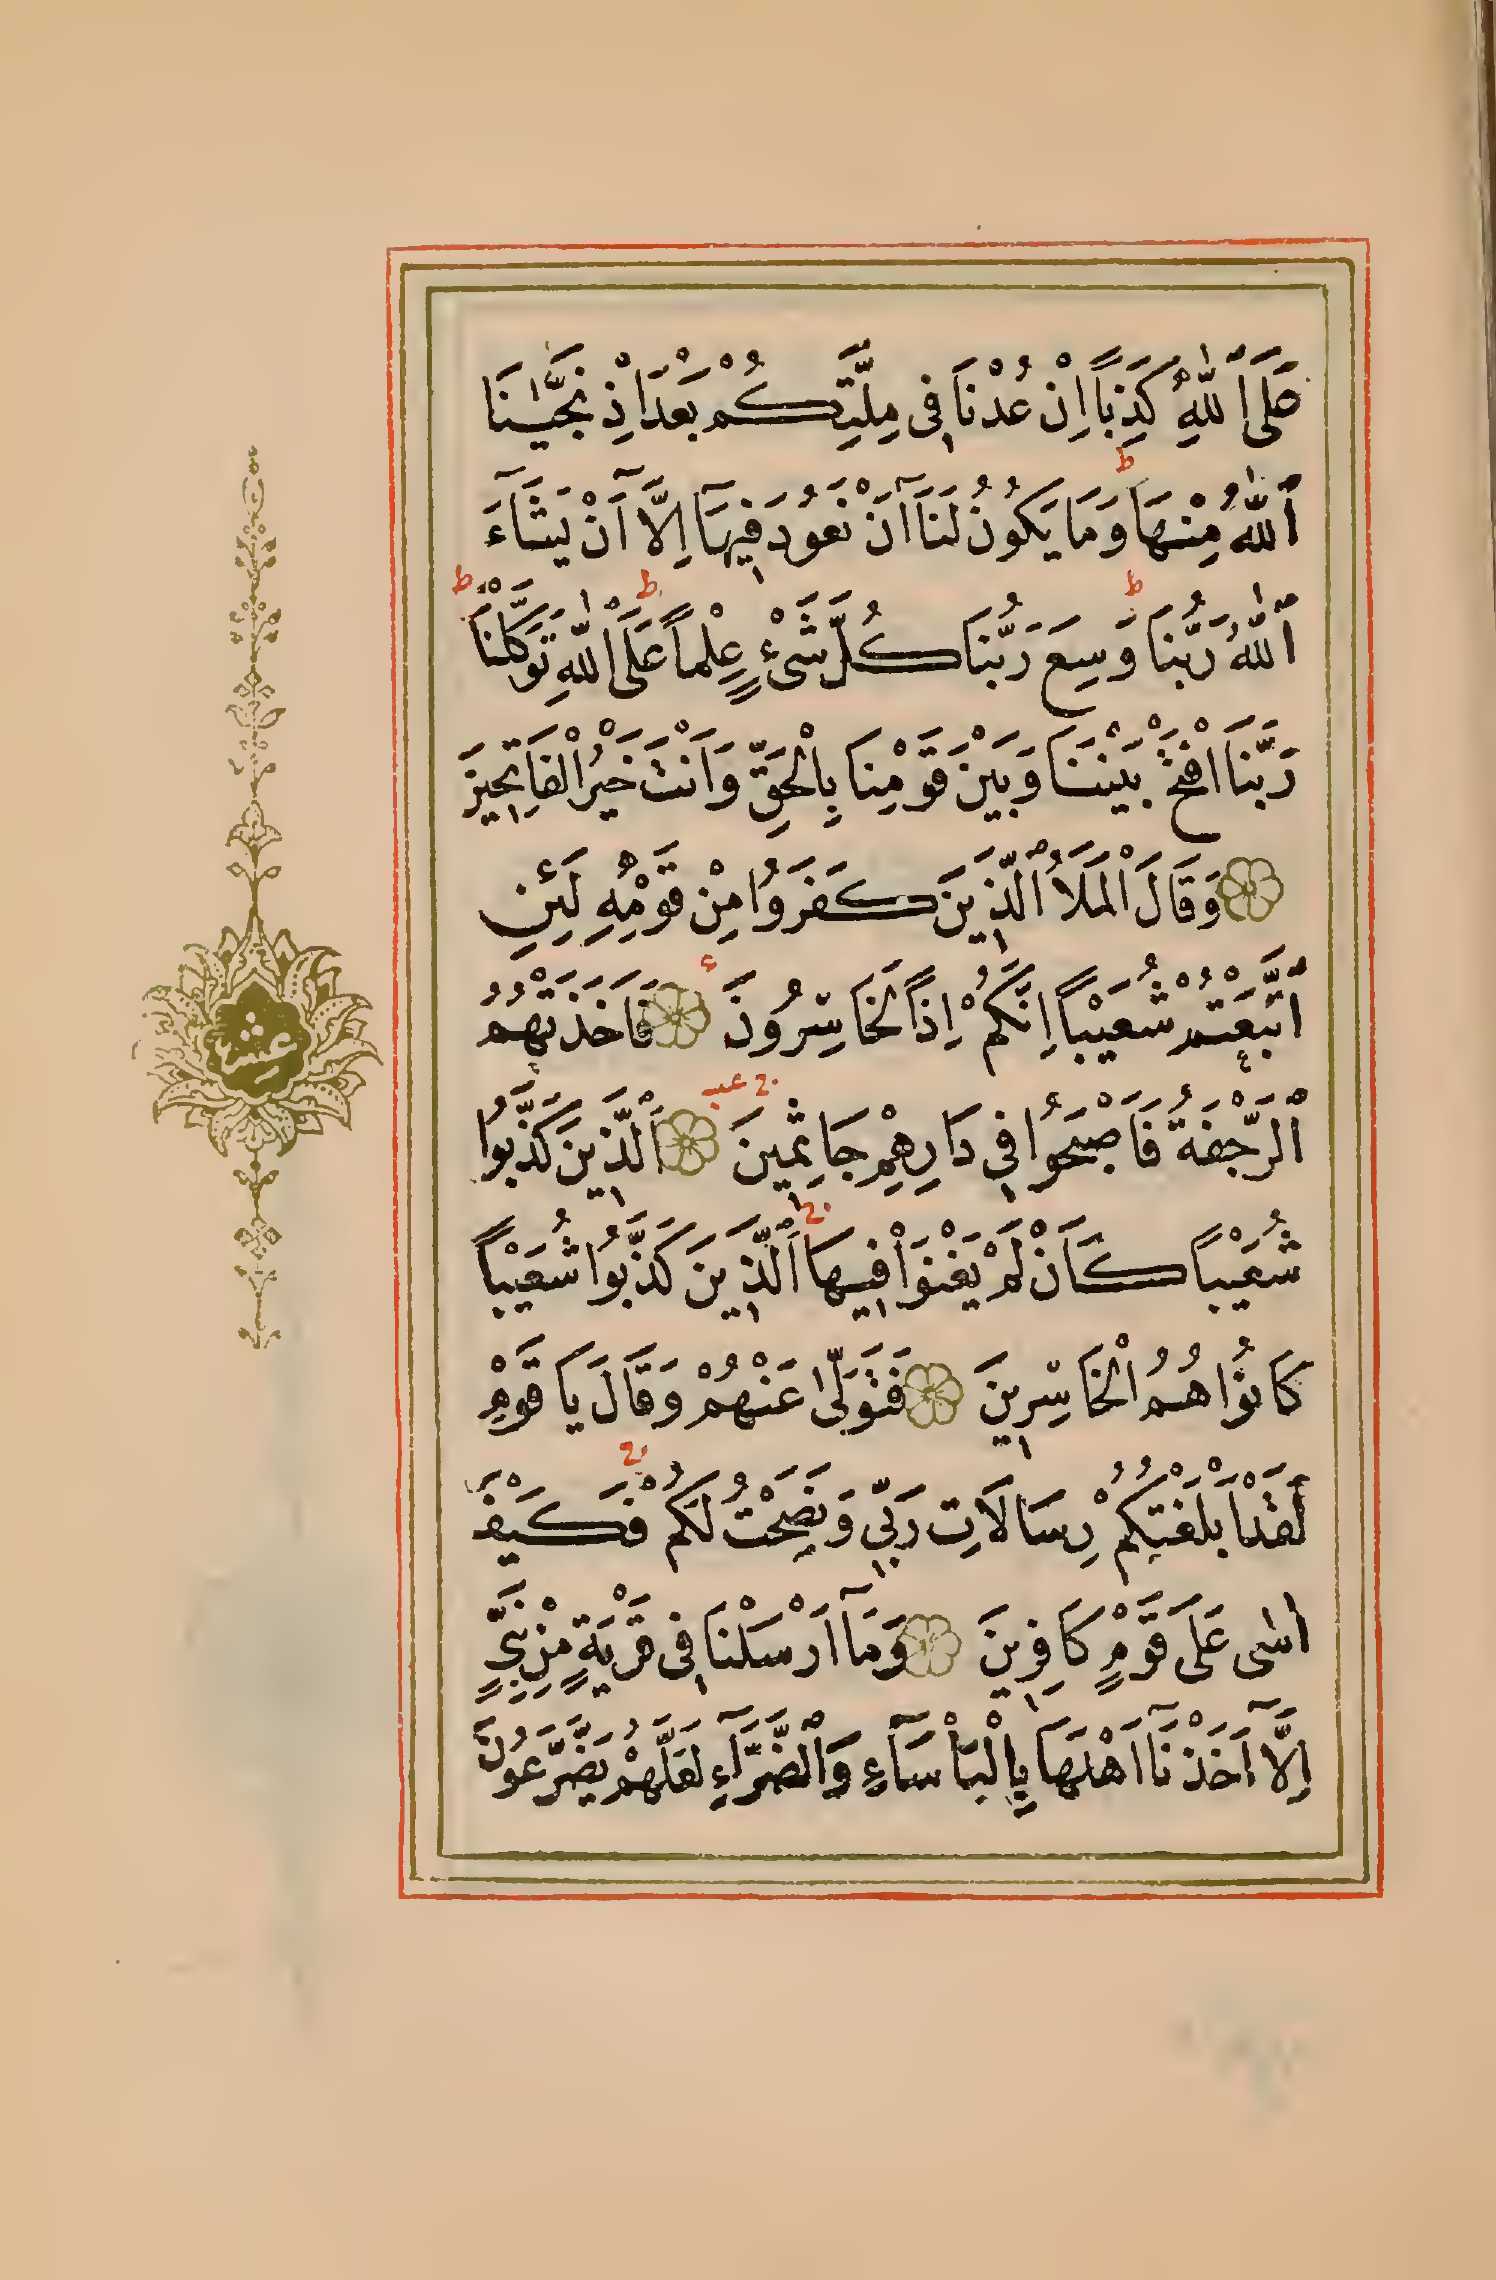 عَلَى ٱللّٰهِ كَذِبًا اِنْ عُدْنَا فِى مِلَّتِكُمْ بَعْدَ اِذْ نَجّٰينَا
ٱللّٰهُ مِنْهَا وَمَا يَكُونُ لَنَآ اَنْ نَعُودَ فِيهَآ اِلَّآ اَنْ يَشَآءَ
ٱللّٰهُ رَبُّنَا وَسِعَ رَبُّنَا كُلَّ شَىْءٍ عِلْمًا عَلَى اللّٰهِ تَوَكَّلْنَا
رَبَّنَا افْتَحْ بَيْنَنَا وَبَيْنَ قَوْمِنَا بِالْحَقِّ وَاَنْتَ خَيْرُ الْفَاتِحِينَ
وَقَالَ الْمَلَاُ ٱلَّذِينَ كَفَرُوا مِنْ قَوْمِهِ لَئِنِ
ٱتَّبَعْتُمْ شُعَيْبًا اِنَّكُمْ اِذًا لَخَاسِرُونَ فَاَخَذَتْهُمُ
ٱلرَّجْفَةُ فَاَصْبَحُوا فِى دَارِهِمْ جَاثِمِينَ اَلَّذِينَ كَذَّبُوا
شُعَيْبًا كَاَنْ لَمْ يَغْنَوْا فِيهَا اَلَّذِينَ كَذَّبُوا شُعَيْبًا
كَانُوا هُمُ الْخَاسِرِينَ فَتَوَلّٰى عَنْهُمْ وَقَالَ يَا قَوْمِ
لَقَدْ اَبْلَغْتُكُمْ رِسَالَاتِ رَبِّى وَنَصَحْتُ لَكُمْ فَكَيْفَ
اٰسٰى عَلَى قَوْمٍ كَافِرِينَ وَمَآ اَرْسَلْنَا فِى قَرْيَةٍ مِنْ نَبِىٍّ
اِلَّآ اَخَذْنَآ اَهْلَهَا بِالْبَاْسَآءِ وَالضَّرَّآءِ لَعَلَّهُمْ يَضَّرَّعُونَ